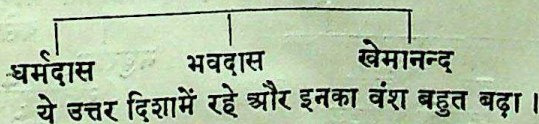 धर्मदास भवदास खेमानन्द
ये उत्तर दिशामें रहे और इनका वंश बहुत बढ़ा ।